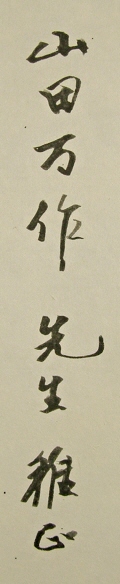 山田万作先生雅正